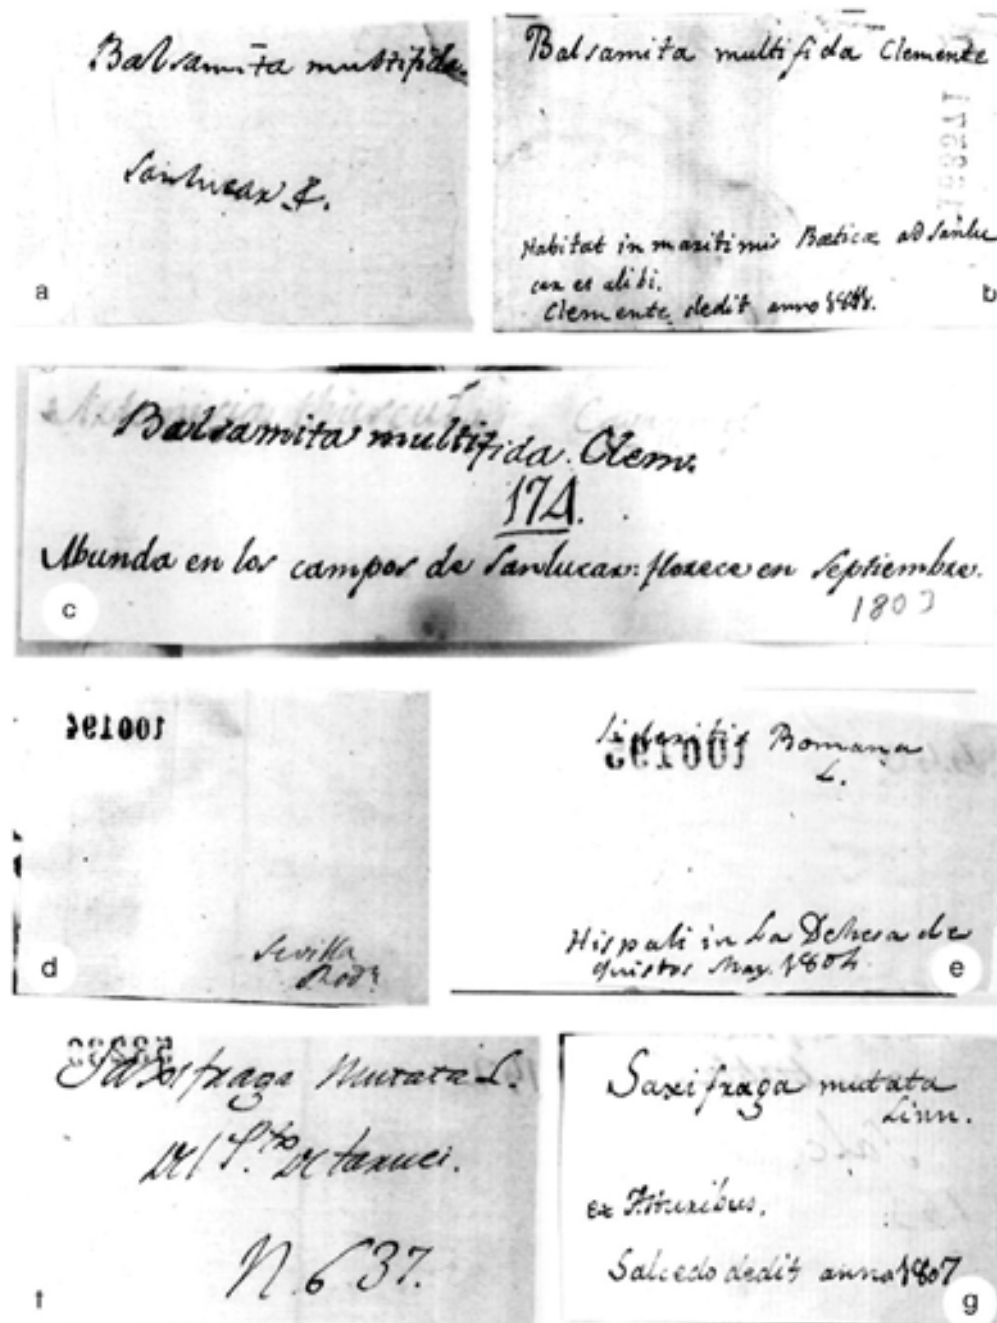 Balsamita multifida
Sanlucar
a
Balsamita multifida Clemente
Habitat in maritimis Bœticæ ad Sanlu
car et alibi.
Clemente dedit anno
b
Balsamita multifida. Clem.
174.
Abunda en los campos de Sanlucar: florece en Septiembre.
1803
c
100194
Sevilla
Rodz
d
100195
Sideritis Romana
L.
Hispali in La Dehesa de
May. 1804
e
Saxifraga Mutata L.
Del P.to De
N. 637.
f
Saxifraga mutata
Linn.
ex Asturibus.
Salcedo dedit anno 1807
g